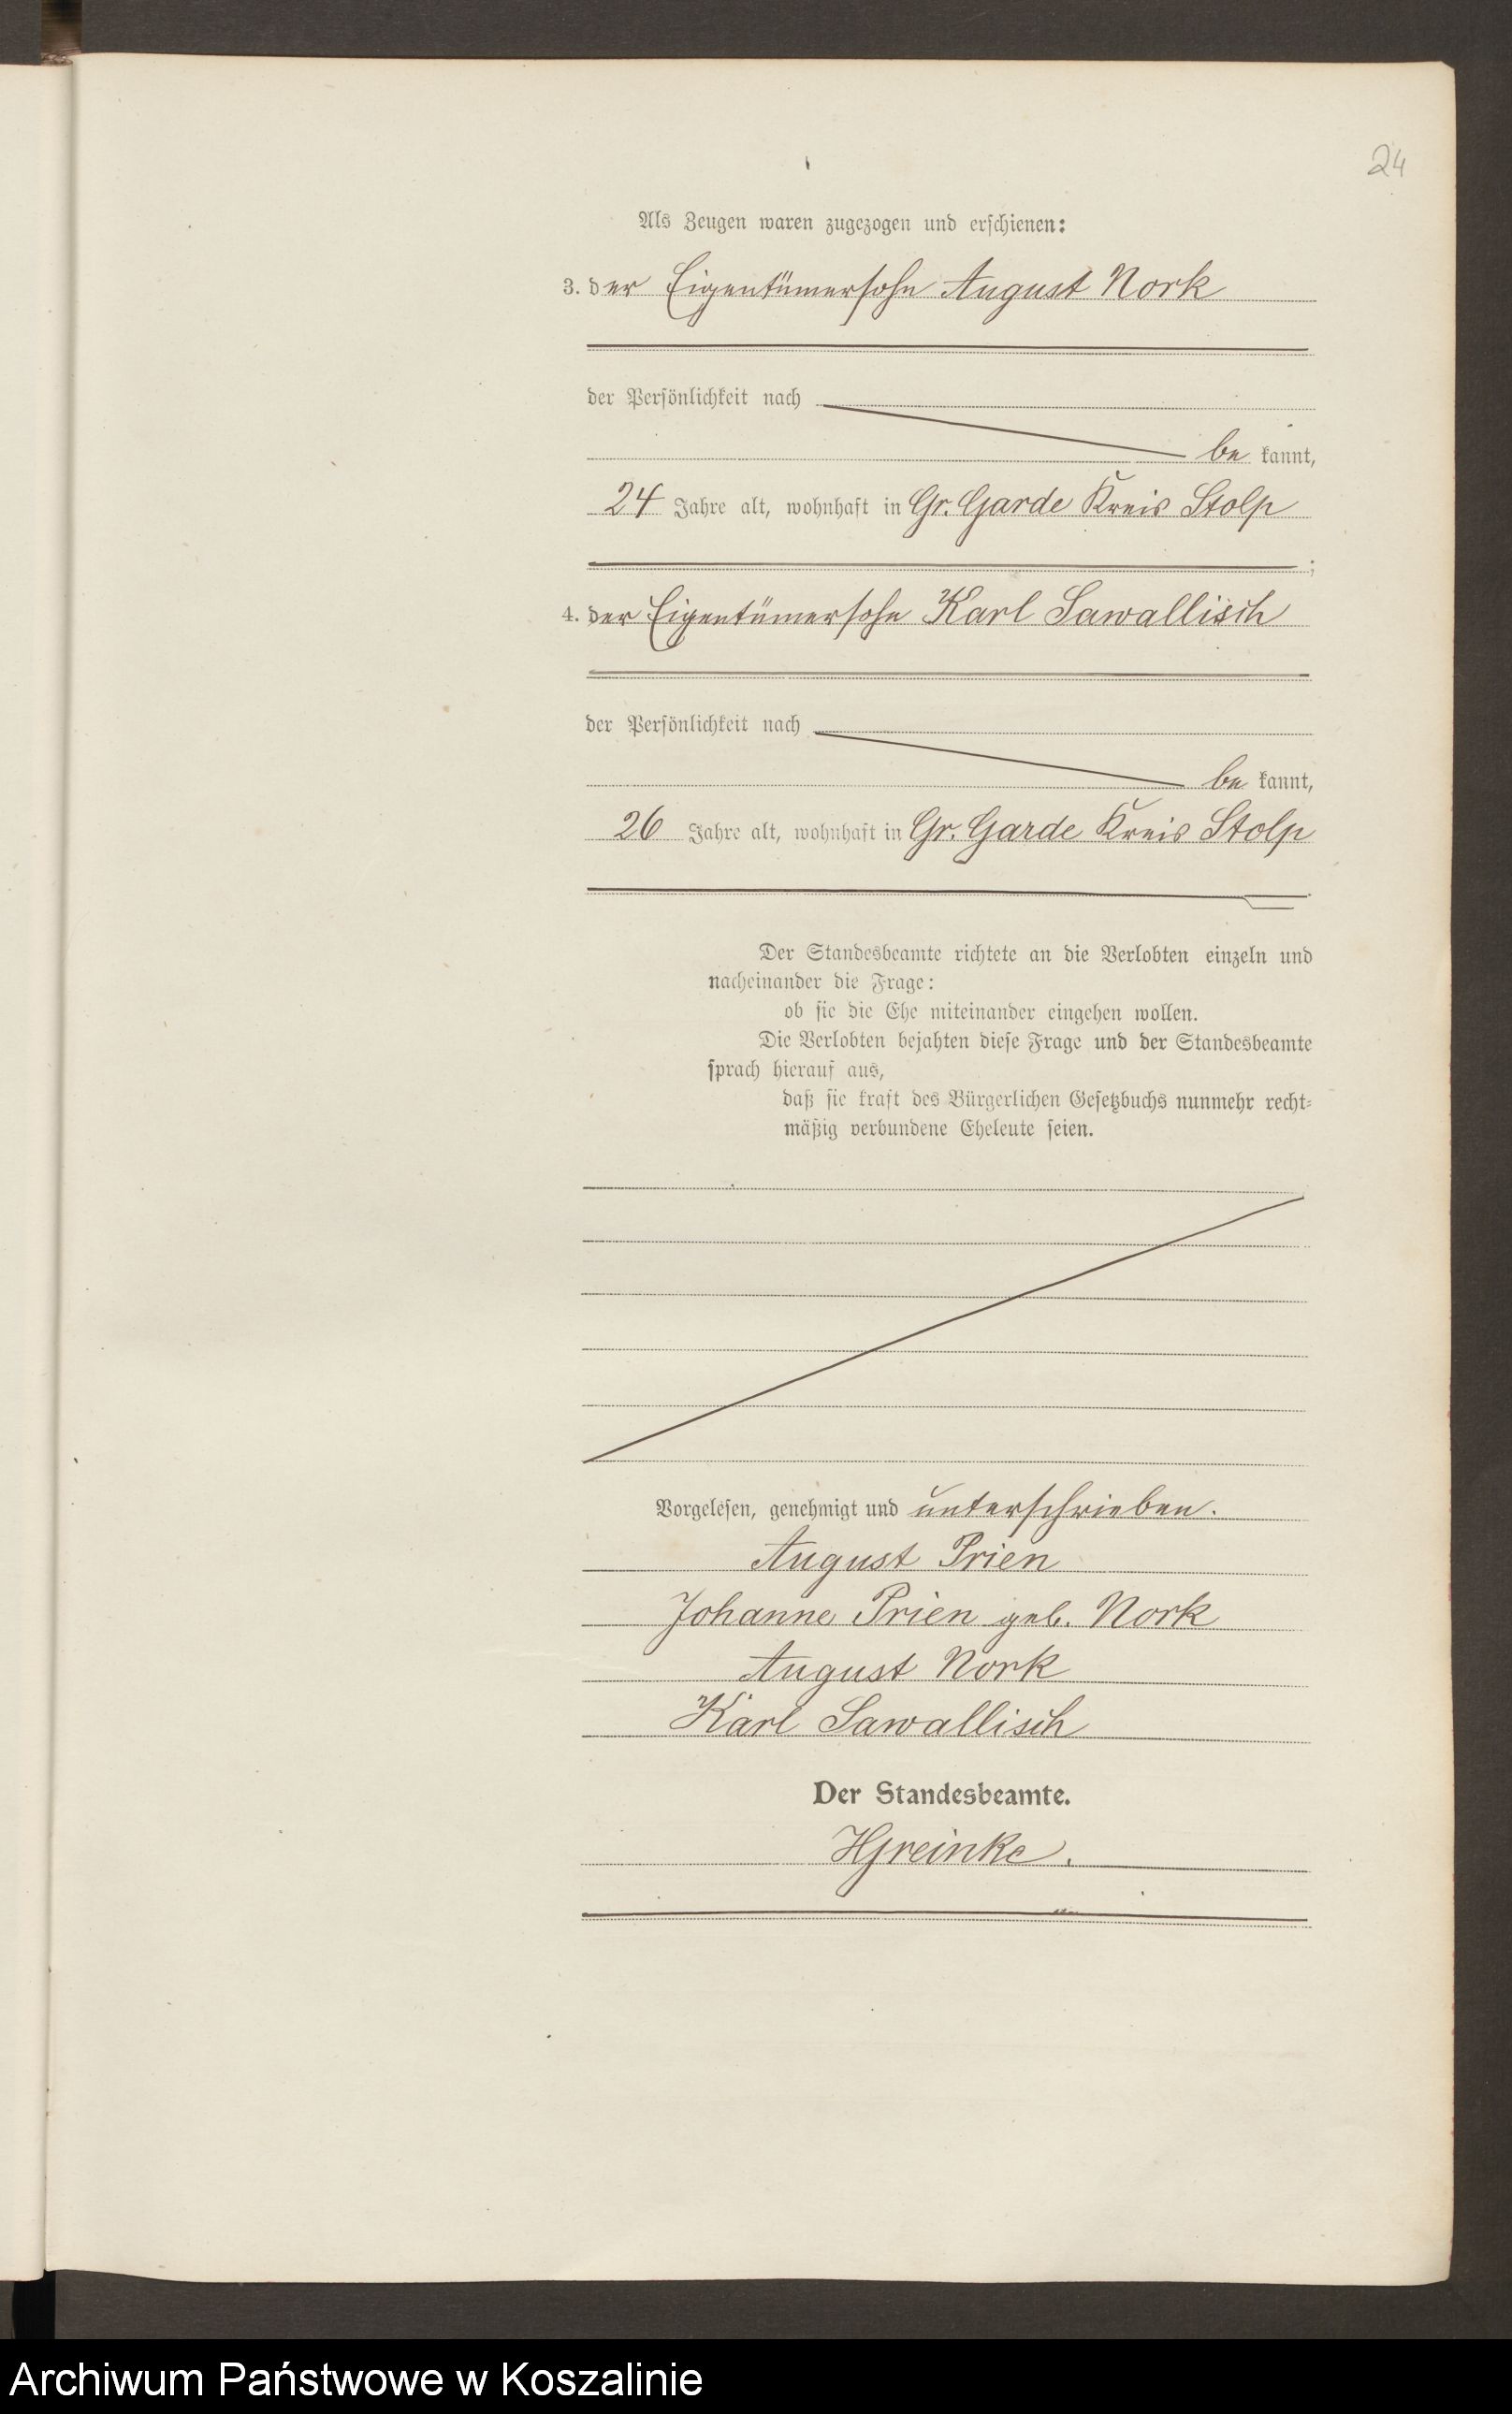 24
Als Zeugen waren zugezogen und erschienen:
3. der Eigentümersohn August Nork
der Persönlichkeit nach
be kannt,
24 Jahre alt, wohnhaft in Gr. Garde Kreis Stolp
;
4. der Eigentümersohn Karl Sawallisch
der Persönlichkeit nach
be kannt,
26 Jahre alt, wohnhaft in Gr. Garde Kreis Stolp
Der Standesbeamte richtete an die Verlobten einzeln und
nacheinander die Frage:
ob sie die Ehe miteinander eingehen wollen.
Die Verlobten bejahten diese Frage und der Standesbeamte
sprach hierauf aus,
daß sie kraft des Bürgerlichen Gesetzbuchs nunmehr recht-
mäßig verbundene Eheleute seien.
Vorgelesen, genehmigt und unterschrieben.
August Prien
Johanne Prien geb. Nork
August Nork
Karl Sawallisch
Der Standesbeamte.
HGreinke.
Archiwum Państwowe w Koszalinie